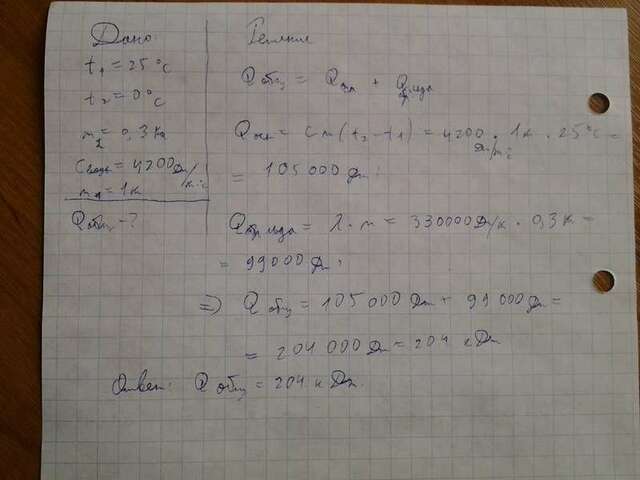 Дано
t₁ = 25 °C
t₂ = 0 °C
m₂ = 0,3 кг
Cводы = 4200 Дж/кг·°C
m₁ = 1 кг
Qобщ - ?
Решение
Qобщ = Qохл + Qкр льда
Qохл = cm(t₂ - t₁) = 4200 Дж/кг°C · 1 кг · 25 °C =
= 105 000 Дж;
Qкр льда = λ · m = 330000 Дж/кг · 0,3 кг =
= 99000 Дж;
=> Qобщ = 105 000 Дж + 99 000 Дж =
= 204 000 Дж = 204 кДж
Ответ: Qобщ = 204 кДж.